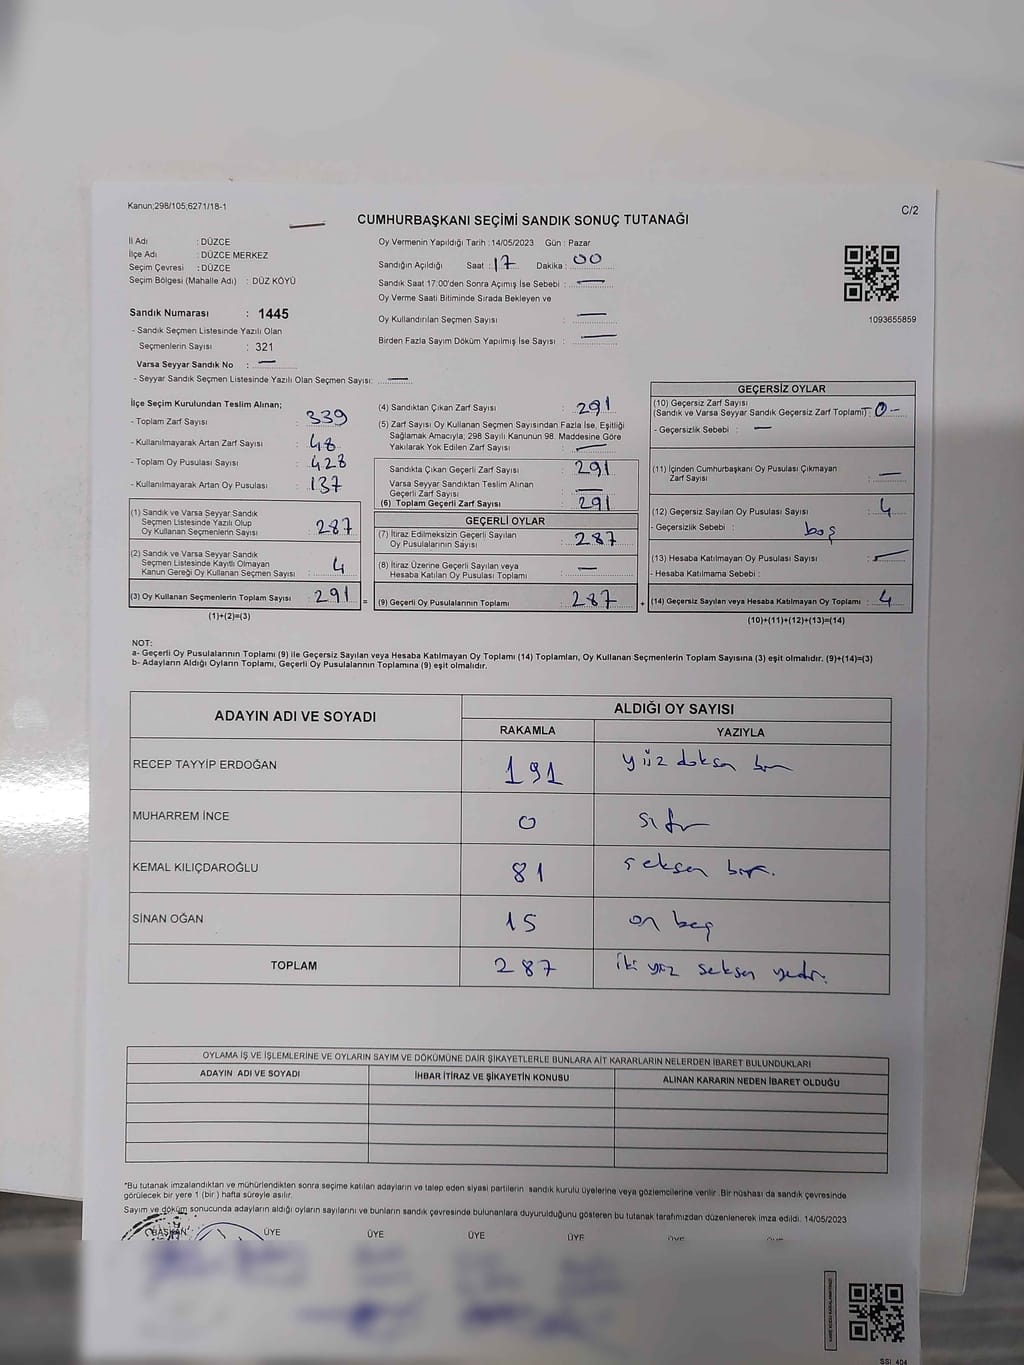 Kanun;298/105;6271/18-1
C/2
CUMHURBAŞKANI SEÇİMİ SANDIK SONUÇ TUTANAĞI
İl Adı : DÜZCE
İlçe Adı : DÜZCE MERKEZ
Seçim Çevresi : DÜZCE
Seçim Bölgesi (Mahalle Adı) : DÜZ KÖYÜ
Sandık Numarası : 1445
- Sandık Seçmen Listesinde Yazılı Olan
Seçmenlerin Sayısı : 321
Varsa Seyyar Sandık No : —
- Seyyar Sandık Seçmen Listesinde Yazılı Olan Seçmen Sayısı: —
Oy Vermenin Yapıldığı Tarih : 14/05/2023 Gün : Pazar
Sandığın Açıldığı Saat : 17 Dakika : 00
Sandık Saat 17:00'den Sonra Açımış İse Sebebi : —
Oy Verme Saati Bitiminde Sırada Bekleyen ve
Oy Kullandırılan Seçmen Sayısı : —
Birden Fazla Sayım Döküm Yapılmış İse Sayısı : —
1093655859
İlçe Seçim Kurulundan Teslim Alınan;
- Toplam Zarf Sayısı : 339
- Kullanılmayarak Artan Zarf Sayısı : 48
- Toplam Oy Pusulası Sayısı : 428
- Kullanılmayarak Artan Oy Pusulası : 137
(1) Sandık ve Varsa Seyyar Sandık
Seçmen Listesinde Yazılı Olup
Oy Kullanan Seçmenlerin Sayısı : 287
(2) Sandık ve Varsa Seyyar Sandık
Seçmen Listesinde Kayıtlı Olmayan
Kanun Gereği Oy Kullanan Seçmen Sayısı : 4
(3) Oy Kullanan Seçmenlerin Toplam Sayısı : 291 =
(1)+(2)=(3)
(4) Sandıktan Çıkan Zarf Sayısı : 291
(5) Zarf Sayısı Oy Kullanan Seçmen Sayısından Fazla İse, Eşitliği
Sağlamak Amacıyla, 298 Sayılı Kanunun 98. Maddesine Göre
Yakılarak Yok Edilen Zarf Sayısı : —
Sandıkta Çıkan Geçerli Zarf Sayısı : 291
Varsa Seyyar Sandıktan Teslim Alınan
Geçerli Zarf Sayısı : —
(6) Toplam Geçerli Zarf Sayısı : 291
GEÇERLİ OYLAR
(7) İtiraz Edilmeksizin Geçerli Sayılan
Oy Pusulalarının Sayısı : 287
(8) İtiraz Üzerine Geçerli Sayılan veya
Hesaba Katılan Oy Pusulası Toplamı : —
(9) Geçerli Oy Pusulalarının Toplamı : 287 +
GEÇERSİZ OYLAR
(10) Geçersiz Zarf Sayısı
(Sandık ve Varsa Seyyar Sandık Geçersiz Zarf Toplamı) : -0-
- Geçersizlik Sebebi : —
(11) İçinden Cumhurbaşkanı Oy Pusulası Çıkmayan
Zarf Sayısı : —
(12) Geçersiz Sayılan Oy Pusulası Sayısı : 4
- Geçersizlik Sebebi : boş
(13) Hesaba Katılmayan Oy Pusulası Sayısı : —
- Hesaba Katılmama Sebebi :
(14) Geçersiz Sayılan veya Hesaba Katılmayan Oy Toplamı : 4
(10)+(11)+(12)+(13)=(14)
NOT:
a- Geçerli Oy Pusulalarının Toplamı (9) ile Geçersiz Sayılan veya Hesaba Katılmayan Oy Toplamı (14) Toplamları, Oy Kullanan Seçmenlerin Toplam Sayısına (3) eşit olmalıdır. (9)+(14)=(3)
b- Adayların Aldığı Oyların Toplamı, Geçerli Oy Pusulalarının Toplamına (9) eşit olmalıdır.
ADAYIN ADI VE SOYADI ALDIĞI OY SAYISI
RAKAMLA YAZIYLA
RECEP TAYYİP ERDOĞAN 191 yüz doksan bir
MUHARREM İNCE 0 sıfır
KEMAL KILIÇDAROĞLU 81 seksen bir.
SİNAN OĞAN 15 on beş
TOPLAM 287 iki yüz seksen yedi.
OYLAMA İŞ VE İŞLEMLERİNE VE OYLARIN SAYIM VE DÖKÜMÜNE DAİR ŞİKAYETLERLE BUNLARA AİT KARARLARIN NELERDEN İBARET BULUNDUKLARI
ADAYIN ADI VE SOYADI İHBAR İTİRAZ VE ŞİKAYETİN KONUSU ALINAN KARARIN NEDEN İBARET OLDUĞU
*Bu tutanak imzalandıktan ve mühürlendikten sonra seçime katılan adayların ve talep eden siyasi partilerin sandık kurulu üyelerine veya gözlemcilerine verilir. Bir nüshası da sandık çevresinde
görülecek bir yere 1 (bir) hafta süreyle asılır.
Sayım ve döküm sonucunda adayların aldığı oyların sayılarını ve bunların sandık çevresinde bulunanlara duyurulduğunu gösteren bu tutanak tarafımızdan düzenlenerek imza edildi. 14/05/2023
BAŞKAN ÜYE ÜYE ÜYE ÜYE ÜYE